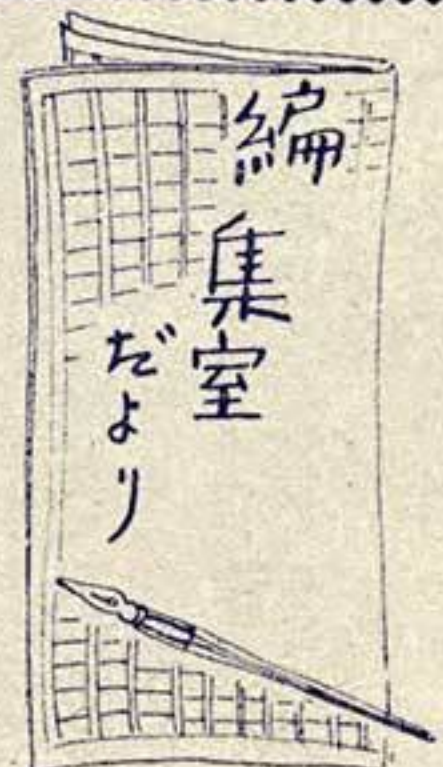 編集室
だより